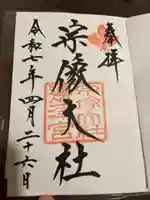 奉拝
宗像大社
令和七年四月二十六日